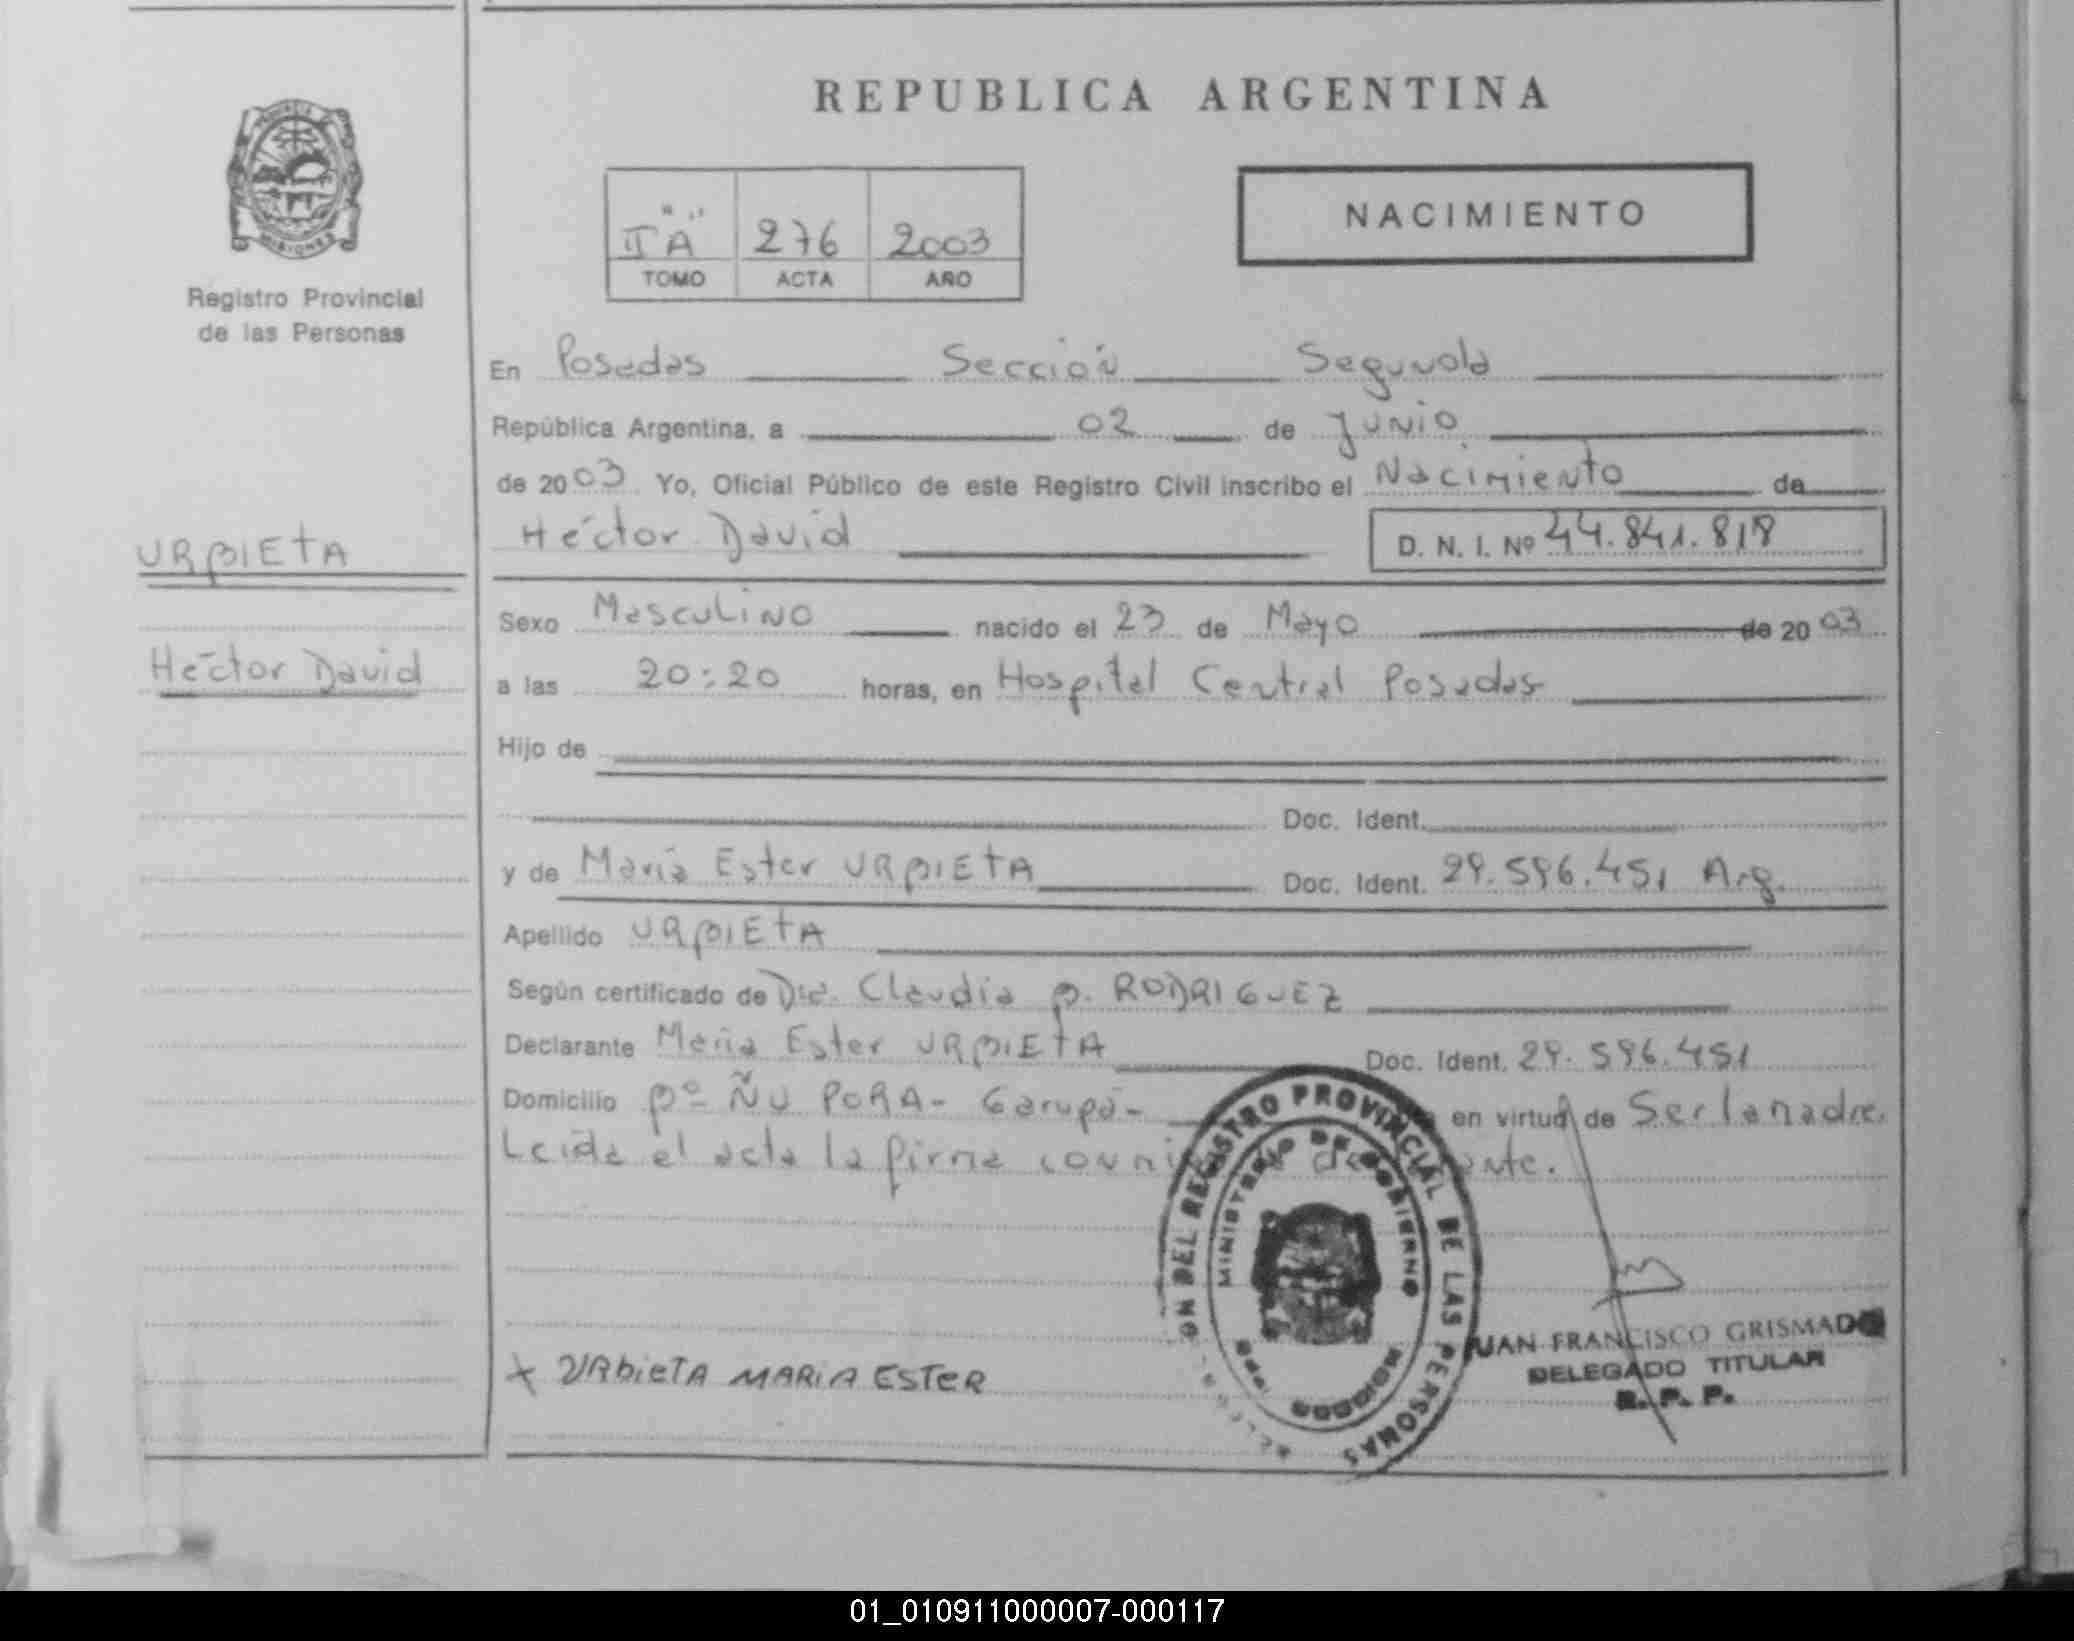 REPUBLICA ARGENTINA
MISIONES
Registro Provincial
de las Personas
II "A" 276 2003
TOMO ACTA AÑO
NACIMIENTO
En Posadas Sección Segunda
República Argentina, a 02 de Junio
de 2003 Yo, Oficial Público de este Registro Civil inscribo el Nacimiento de
Héctor David D. N. I. Nº 44.841.818
URBIETA
Sexo Masculino nacido el 23 de Mayo de 2003
Héctor David
a las 20:20 horas, en Hospital Central Posadas
Hijo de
Doc. Ident.
y de María Ester URBIETA Doc. Ident. 29.596.451 Arg.
Apellido URBIETA
Según certificado de Dra. Claudia B. RODRIGUEZ
Declarante María Ester URBIETA Doc. Ident. 29.596.451
Domicilio Bº ÑU PORA - Garupá - en virtud de Ser la madre.
Leída el acta la firma conmigo
REGISTRO PROVINCIAL DE LAS PERSONAS
MINISTERIO DE GOBIERNO
JUAN FRANCISCO GRISMADO
DELEGADO TITULAR
R. P. P.
x URbieTA MARiA ESTER
01_010911000007-000117